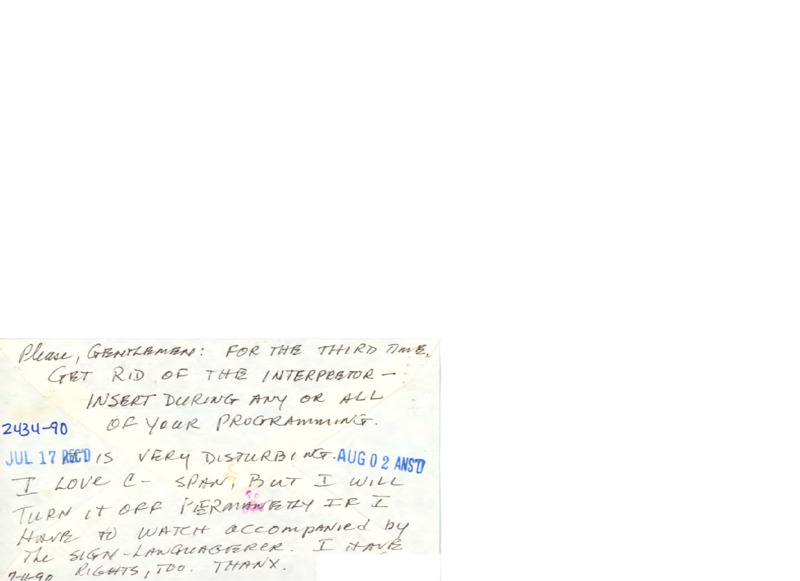 Please, GENTLEMEN: FOR THE THIRD TIME,
GET RID OF THE INTERPRETOR –
INSERT DURING ANY OR ALL
OF YOUR PROGRAMMING.
2434-90
JUL 17 REC'D IS VERY DISTURBING. AUG 02 ANS'D
I LOVE C- SPAN, BUT I WILL
TURN IT OFF PERMANETLY IF I
HAVE TO WATCH accompanied by
The SIGN-LANGUAGERER. I HAVE
7-11-90 RIGHTS, TOO. THANX.